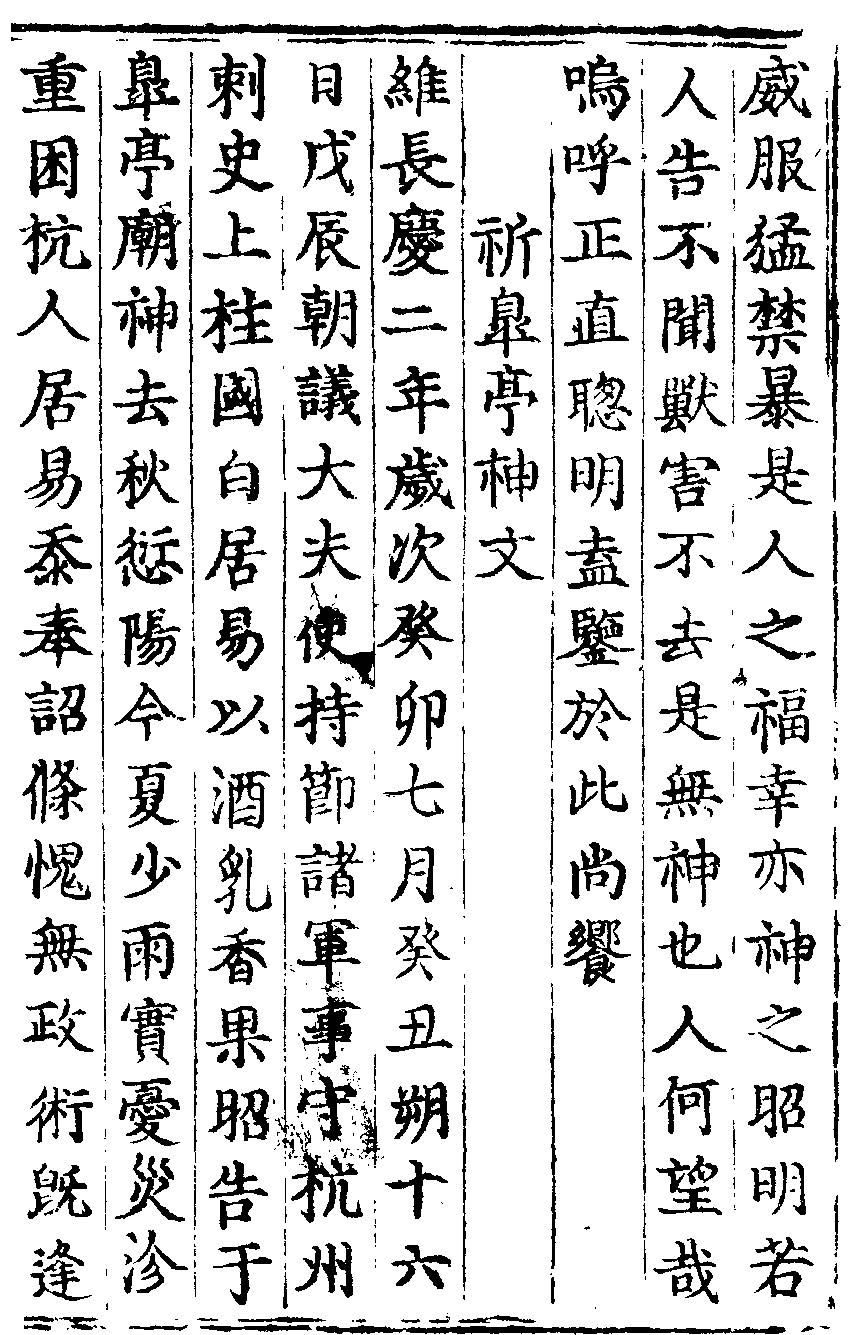 威服猛禁暴是人之福幸亦神之昭明若
人告不聞獸害不去是無神也人何望哉
嗚呼正直聰明盍鑒於此尚饗
祈皐亭神文
維長慶二年歲次癸卯七月癸丑朔十六
日戊辰朝議大夫使持節諸軍事守杭州
刺史上柱國白居易以酒乳香果昭告于
皐亭廟神去秋愆陽今夏少雨實憂災沴
重困杭人居易忝奉詔條愧無政術旣逢